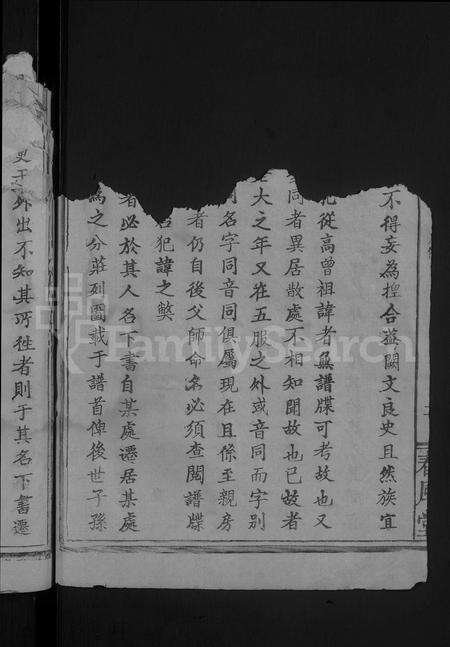 不得妄為揑合蓋闕文良史且然族宜
從高曾祖諱者無譜牒可考故也又
同者異居散處不相知聞故也已故者
大之年又在五服之外或音同而字別
名字同音同俱屬現在且係至親房
者仍自後父師命名必須查閱譜牒
犯諱之獘
者必於其人名下書自某處遷居某處
為之分莊列圖載于譜首俾後世子孫
外出不知其所徃者則于其名下書遷
春風堂
FamilySearch